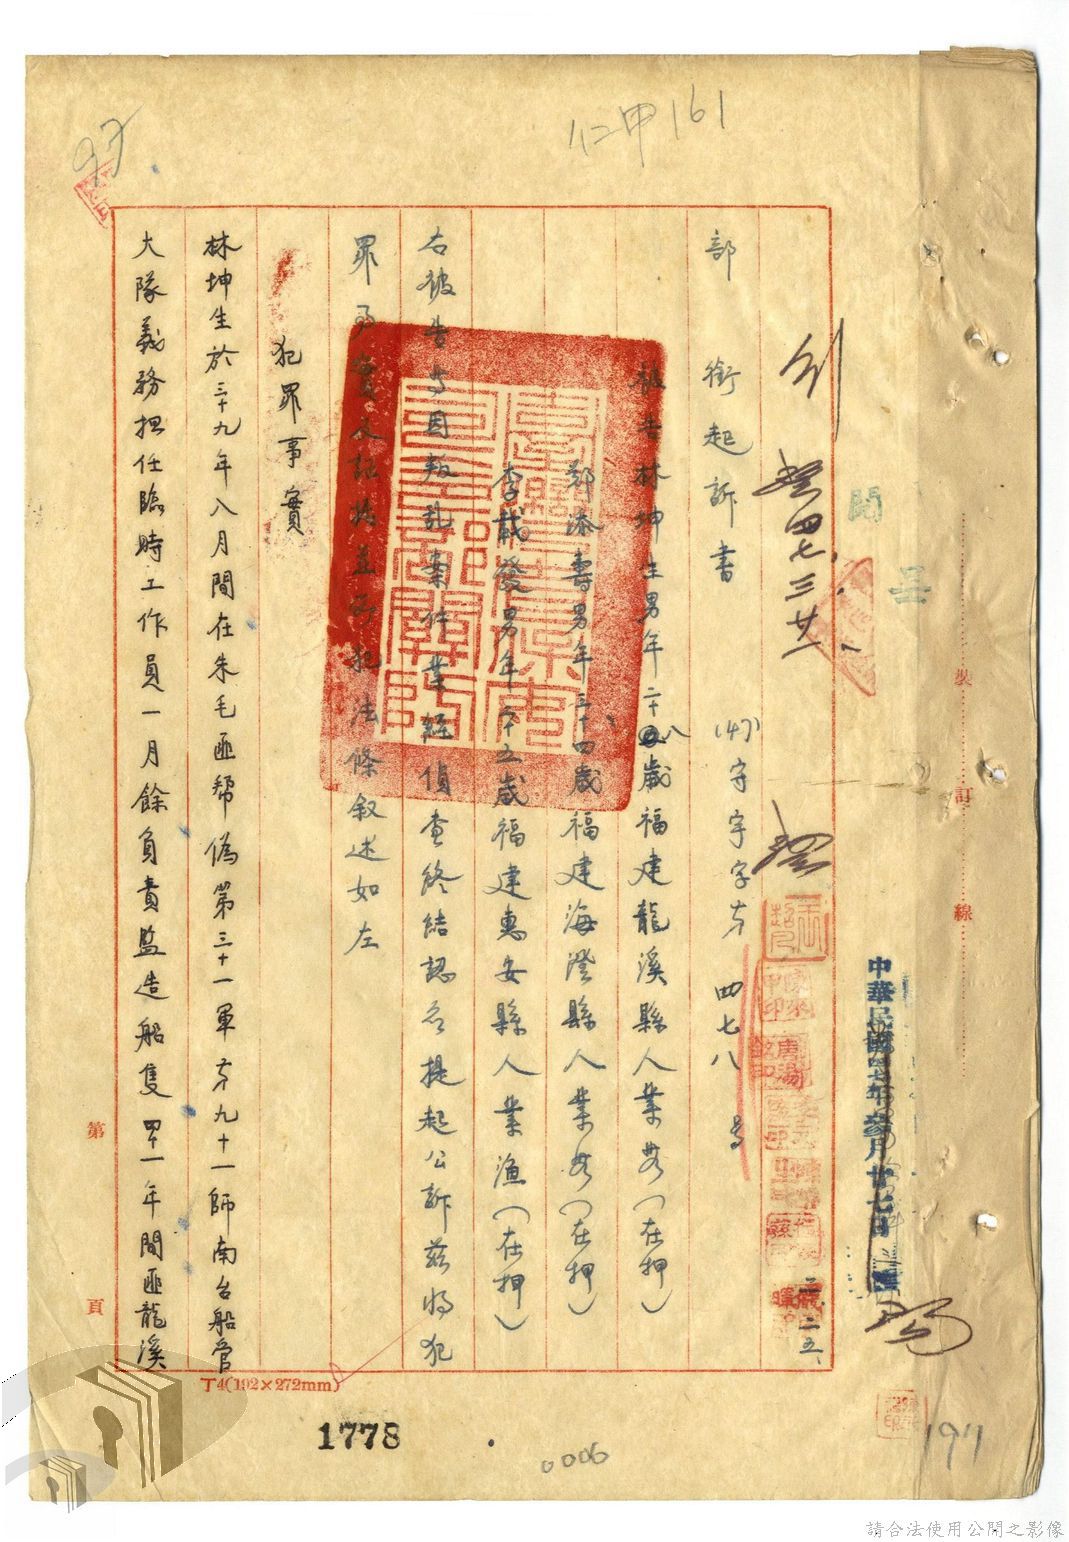 97
仁甲161
部銜起訴書
(47)字字字第四七八号
被告林坤生男年二十八歲福建龍溪縣人業農(在押)
鄭添壽男年三十四歲福建海澄縣人業農(在押)
李載發男年二十五歲福建惠安縣人業漁(在押)
右被告等因叛乱案件業經偵查終結認為應提起公訴茲將犯
罪事實及証據並所犯法條叙述如左
犯罪事實
林坤生於三十九年八月間在朱毛匪幫偽第三十一軍第九十一師南台船管
大隊義務担任臨時工作員一月餘負責監造船隻四十一年間匪龍溪
四七、三、廿一、
二、二五、
中華民國四七年叁月廿七日
裝
訂
線
第
頁
丁4(192×272mm)
1778
0006
197
請合法使用公開之影像